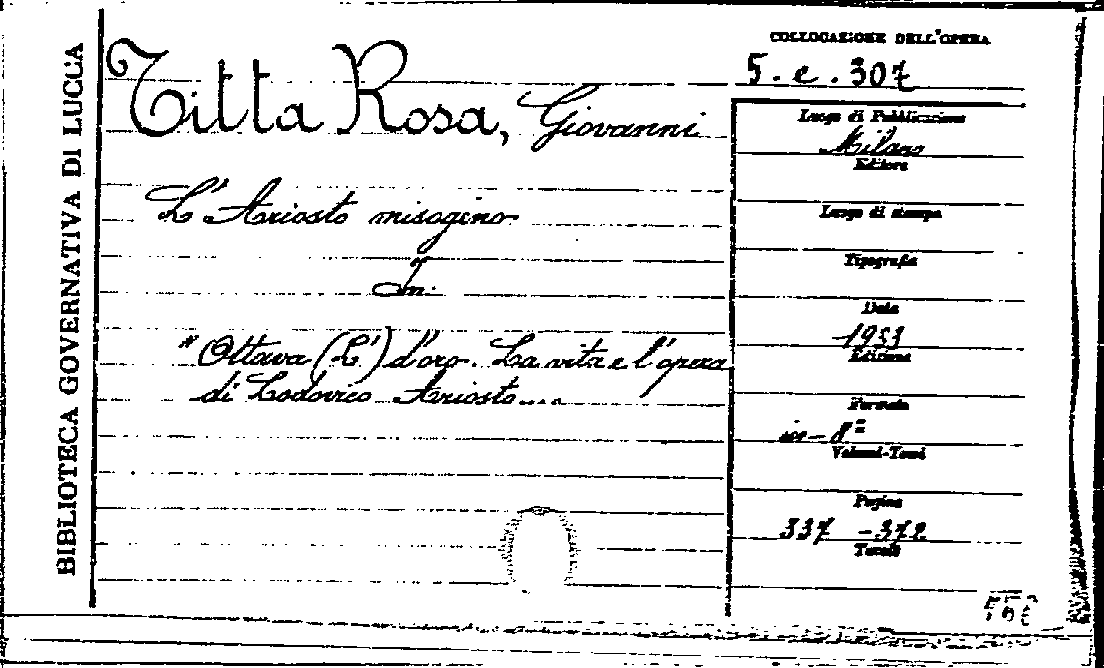 BIBLIOTECA GOVERNATIVA DI LUCCA
Titta Rosa, Giovanni
L'Ariosto misogino
In:
"Ottava (L') d'oro. La vita e l'opera
di Lodovico Ariosto....
COLLOCAZIONE DELL'OPERA
5. e. 307
Luogo di Pubblicazione
Milano
Editore
Luogo di stampa
Tipografia
Data
1933
Edizione
Formato
in-8º
Volumi-Tomi
Pagine
337 - 372
Tavole